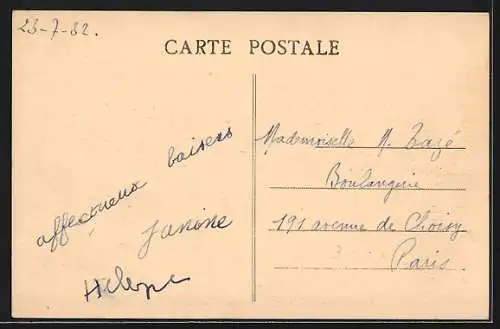 23-7-32.
CARTE POSTALE
affectueux baisers
Janine
Hélène
Mademoiselle M. Tazé
Boulangerie
191 avenue de Choisy
Paris.